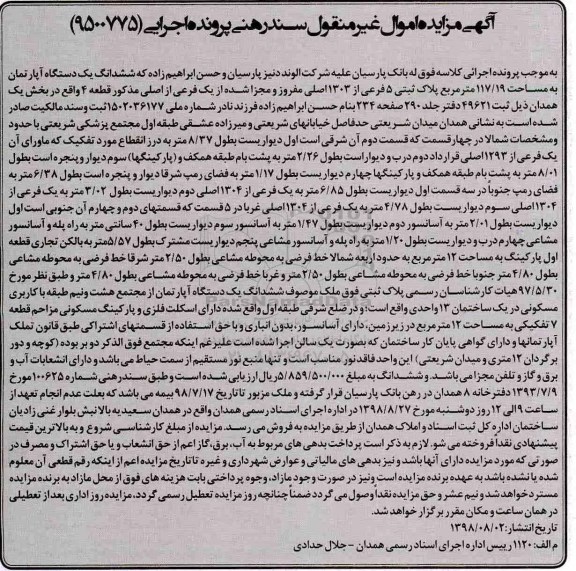 آگهی مزایده اموال غیر منقول سند رهنی پرونده اجرایی (۹۵۰۰۷۷۵)
به موجب پرونده اجرائی کلاسه فوق له بانک پارسیان علیه شرکت الوند دنیز پارسیان و حسن ابراهیم زاده که ششدانگ یک دستگاه آپارتمان
به مساحت ۱۱۷/۱۹ مترمربع پلاک ثبتی ۵ فرعی از ۱۳۰۳ اصلی مفروز و مجزا شده از یک فرعی از اصلی مذکور قطعه ۴ واقع در بخش یک
همدان ذیل ثبت ۴۹۶۲۱ دفتر جلد ۲۹۰ صفحه ۲۳۴ بنام حسن ابراهیم زاده فرزند نادر شماره ملی ۱۵۰۲۰۳۶۱۷۷ ثبت و سند مالکیت صادر
شده است به نشانی همدان میدان شریعتی حدفاصل خیابانهای شریعتی و میرزاده عشقی طبقه اول مجتمع پزشکی شریعتی با حدود
و مشخصات شمالا در چهار قسمت که قسمت دوم آن شرقی است اول دیواریست بطول ۸/۳۷ متر به درز انقطاع مورد تفکیک که ماورای آن
یک فرعی از ۱۲۹۳ اصلی قرارداد دوم درب و دیوار است بطول ۲/۲۶ متر به پشت بام طبقه همکف و (پارکینگها) سوم دیوار و پنجره است بطول
۸/۰۱ متر به پشت بام طبقه همکف و پارکینگها چهارم دیواریست بطول ۱/۱۷ متر به فضای رمپ شرقا دیوار و پنجره است بطول ۶/۳۸ متر به
فضای رمپ جنوبا در سه قسمت اول دیواریست بطول ۶/۸۵ متر به یک فرعی از ۱۳۰۴ اصلی دوم دیواریست بطول ۳/۰۲ متر به یک فرعی از
۱۳۰۴ اصلی سوم دیواریست بطول ۴/۷۸ متر به یک فرعی از ۱۳۰۴ اصلی غربا در ۵ قسمت که قسمتهای دوم و چهارم آن جنوبی است اول
دیواریست بطول ۲/۰۱ متر به آسانسور دوم دیواریست بطول ۱/۴۷ متر به آسانسور سوم دیواریست بطول ۴۰ سانتی متر به راه پله و آسانسور
مشاعی چهارم درب و دیواریست بطول ۱/۲۰ متر به راه پله و آسانسور مشاعی پنجم دیواریست مشترک بطول ۵/۵۷ متر به بالکن تجاری قطعه
اول پارکینگ به مساحت ۱۲ مترمربع به حدود اربعه شمالا خط فرضی به محوطه مشاعی بطول ۲/۵۰ متر شرقا خط فرضی به محوطه مشاعی
بطول ۴/۸۰ متر جنوبا خط فرضی به محوطه مشاعی بطول ۲/۵۰ متر و غربا خط فرضی به محوطه مشاعی بطول ۴/۸۰ متر و طبق نظر مورخ
۹۷/۵/۳۰ هیات کارشناسان رسمی پلاک ثبتی فوق ملک موصوف ششدانگ یک دستگاه آپارتمان از مجتمع هشت و نیم طبقه با کاربری
مسکونی در یک ساختمان ۱۳ واحدی واقع است: و در ضلع شرقی طبقه اول واقع شده دارای اسکلت فلزی و پارکینگ مسکونی مزاحم قطعه
۷ تفکیکی به مساحت ۱۲ مترمربع در زیرزمین، دارای آسانسور، بدون انباری و با حق استفاده از قسمتهای اشتراکی طبق قانون تملک
آپارتمانها و دارای گواهی پایان کار ساختمان که بصورت یک سالن اجرا شده است علیرغم اینکه مجتمع فوق الذکر دو بر بوده (کوچه و دور
برگردان ۱۲ متری و میدان شریعتی) این واحد فاقد نور مناسب است و تنها منبع نور مستقیم از سمت حیاط می باشد و دارای انشعابات آب و
برق و گاز و تلفن مجزا می باشد. و ششدانگ به مبلغ ۵/۸۵۹/۵۰۰/۰۰۰ ریال ارزیابی شده است و طبق سند رهنی شماره ۱۰۰۶۲۵ مورخ
۱۳۹۳/۷/۹ دفترخانه ۸ همدان در رهن بانک پارسیان قرار گرفته و ملک مزبور تا تاریخ ۹۸/۷/۱۷ بیمه می باشد که بعلت عدم انجام تعهد از
ساعت ۹ الی ۱۲ روز دوشنبه مورخ ۱۳۹۸/۸/۲۷ در اداره اجرای اسناد رسمی همدان واقع در همدان سعیدیه بالا نبش بلوار غنی زادیان
ساختمان اداره کل ثبت اسناد و املاک همدان از طریق مزایده به فروش می رسد. مزایده از مبلغ کارشناسی شروع و به بالاترین قیمت
پیشنهادی نقدا فروخته می شود. لازم به ذکر است پرداخت بدهی های مربوط به آب، برق، گاز اعم از حق انشعاب و یا حق اشتراک و مصرف در
صورتی که مورد مزایده دارای آنها باشد و نیز بدهی های مالیاتی و عوارض شهرداری و غیره تا تاریخ مزایده اعم از اینکه رقم قطعی آن معلوم
شده یا نشده باشد به عهده برنده مزایده است و نیز در صورت وجود مازاد، وجوه پرداختی بابت هزینه های فوق از محل مازاد به برنده مزایده
مسترد خواهد شد و نیم عشر و حق مزایده نقدا وصول می گردد ضمناً چنانچه روز مزایده تعطیل رسمی گردد، مزایده روز اداری بعد از تعطیلی
در همان ساعت و مکان مقرر برگزار خواهد شد.
تاریخ انتشار: ۱۳۹۸/۰۸/۰۲
م الف: ۱۱۲۰ رییس اداره اجرای اسناد رسمی همدان - جلال حدادی